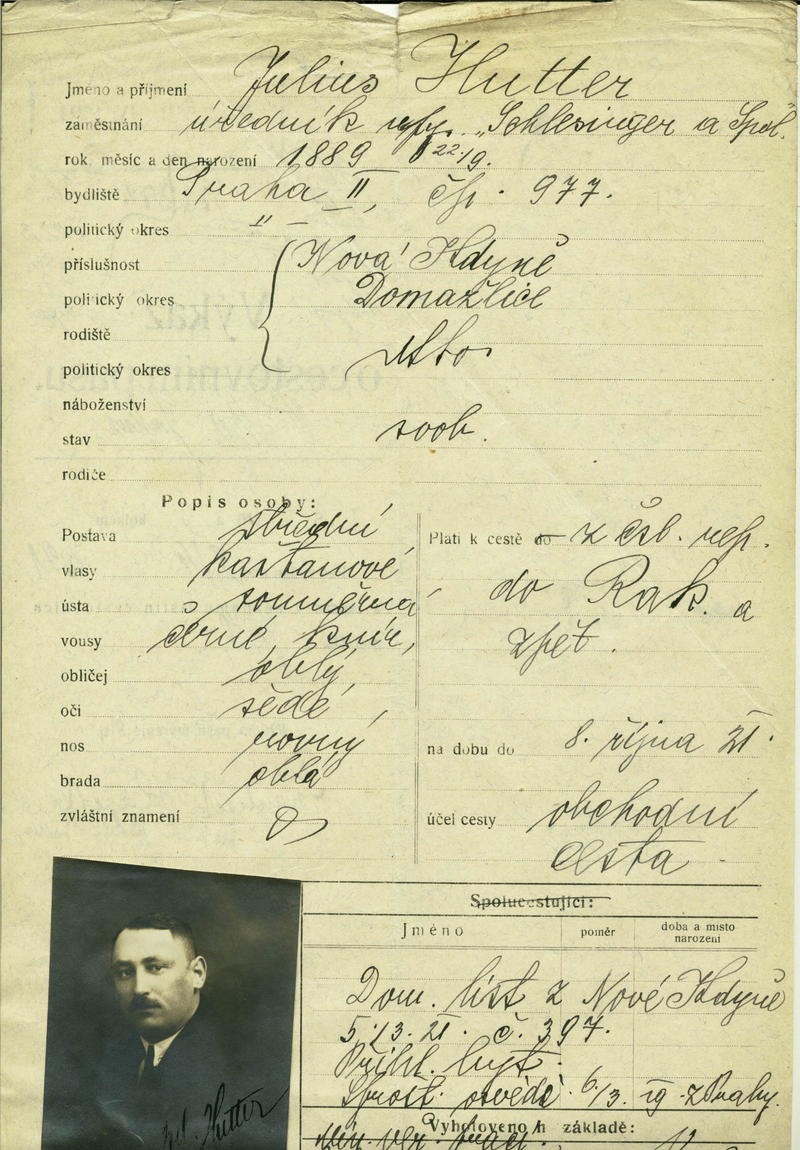 Jméno a příjmení Julius Hutter
zaměstnání úředník "Schlesinger a Spol.
rok, měsíc a den narození 1889 22/9.
bydliště Praha II, čp. 977.
politický okres " —
příslušnost Nová Kdyně
politický okres Domažlice
rodiště
politický okres
náboženství
stav svob.
rodiče
Popis osoby:
Postava střední
vlasy kaštanové
ústa souměrná
vousy černé, knír,
obličej oblý,
oči šedé,
nos rovný
brada oblá
zvláštní znamení
Platí k cestě do z čsl. rep.
do Rak. a
zpět.
na dobu do 8. října 21.
účel cesty obchodní
cesta.
Spolucestující:
Jméno poměr doba a místo
narození
Dom. list z Nové Kdyně
5./3. 21. č. 397.
Přihl. byt.
osvědč. 6/3. z Prahy.
Vyhotoveno na základě:
Jul. Hutter